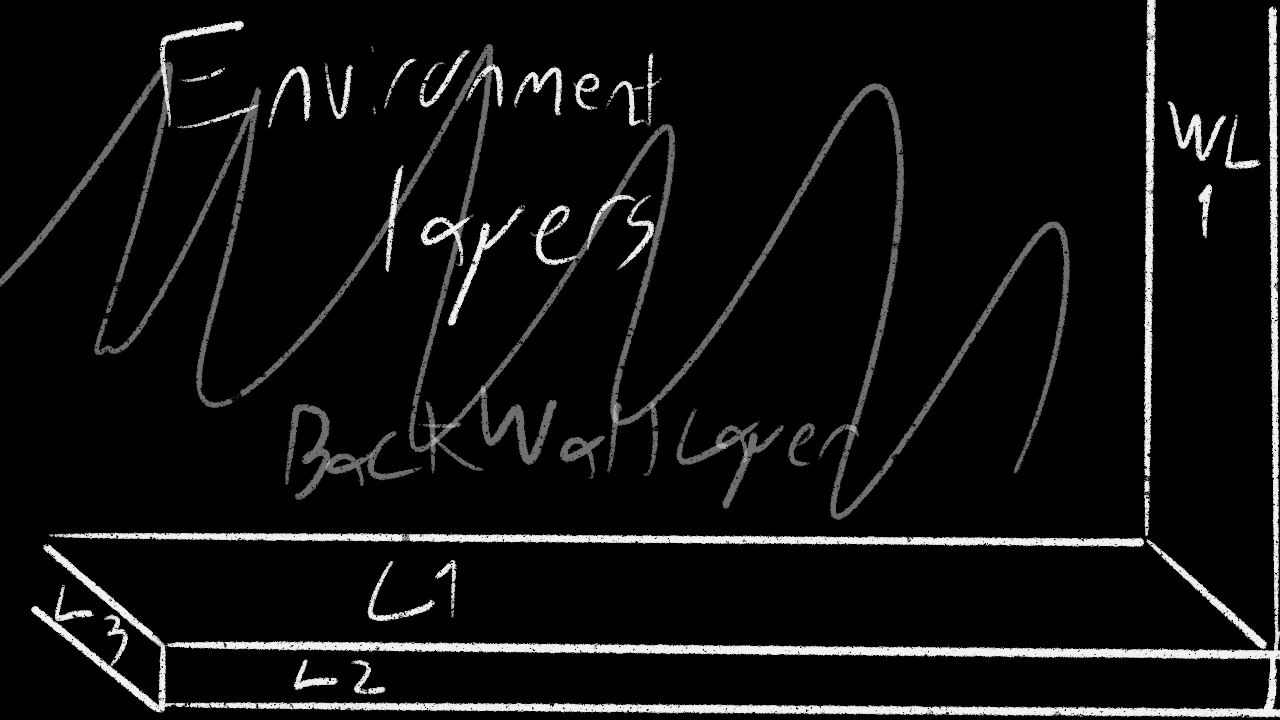 Environment
WL
1
layers
Back Wall Layer
L1
L3
L2